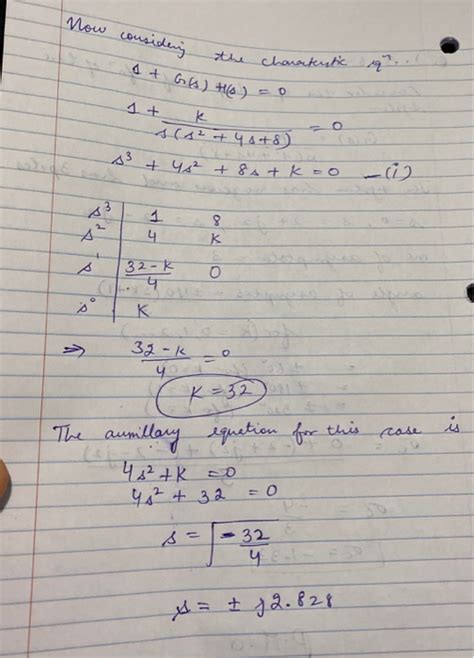 Now considering the charakristic eqn...
1 + G(s) H(s) = 0
1 + k / s(s² + 4s + 8) = 0
s³ + 4s² + 8s + k = 0 — (i)
s³ | 1 8
s² | 4 k
s¹ | (32 - k)/4 0
s⁰ | K
⇒ (32 - k)/4 = 0
K = 32
The aumillary equetion for this case is
4s² + K = 0
4s² + 32 = 0
s = √(-32/4)
s = ± j2.828